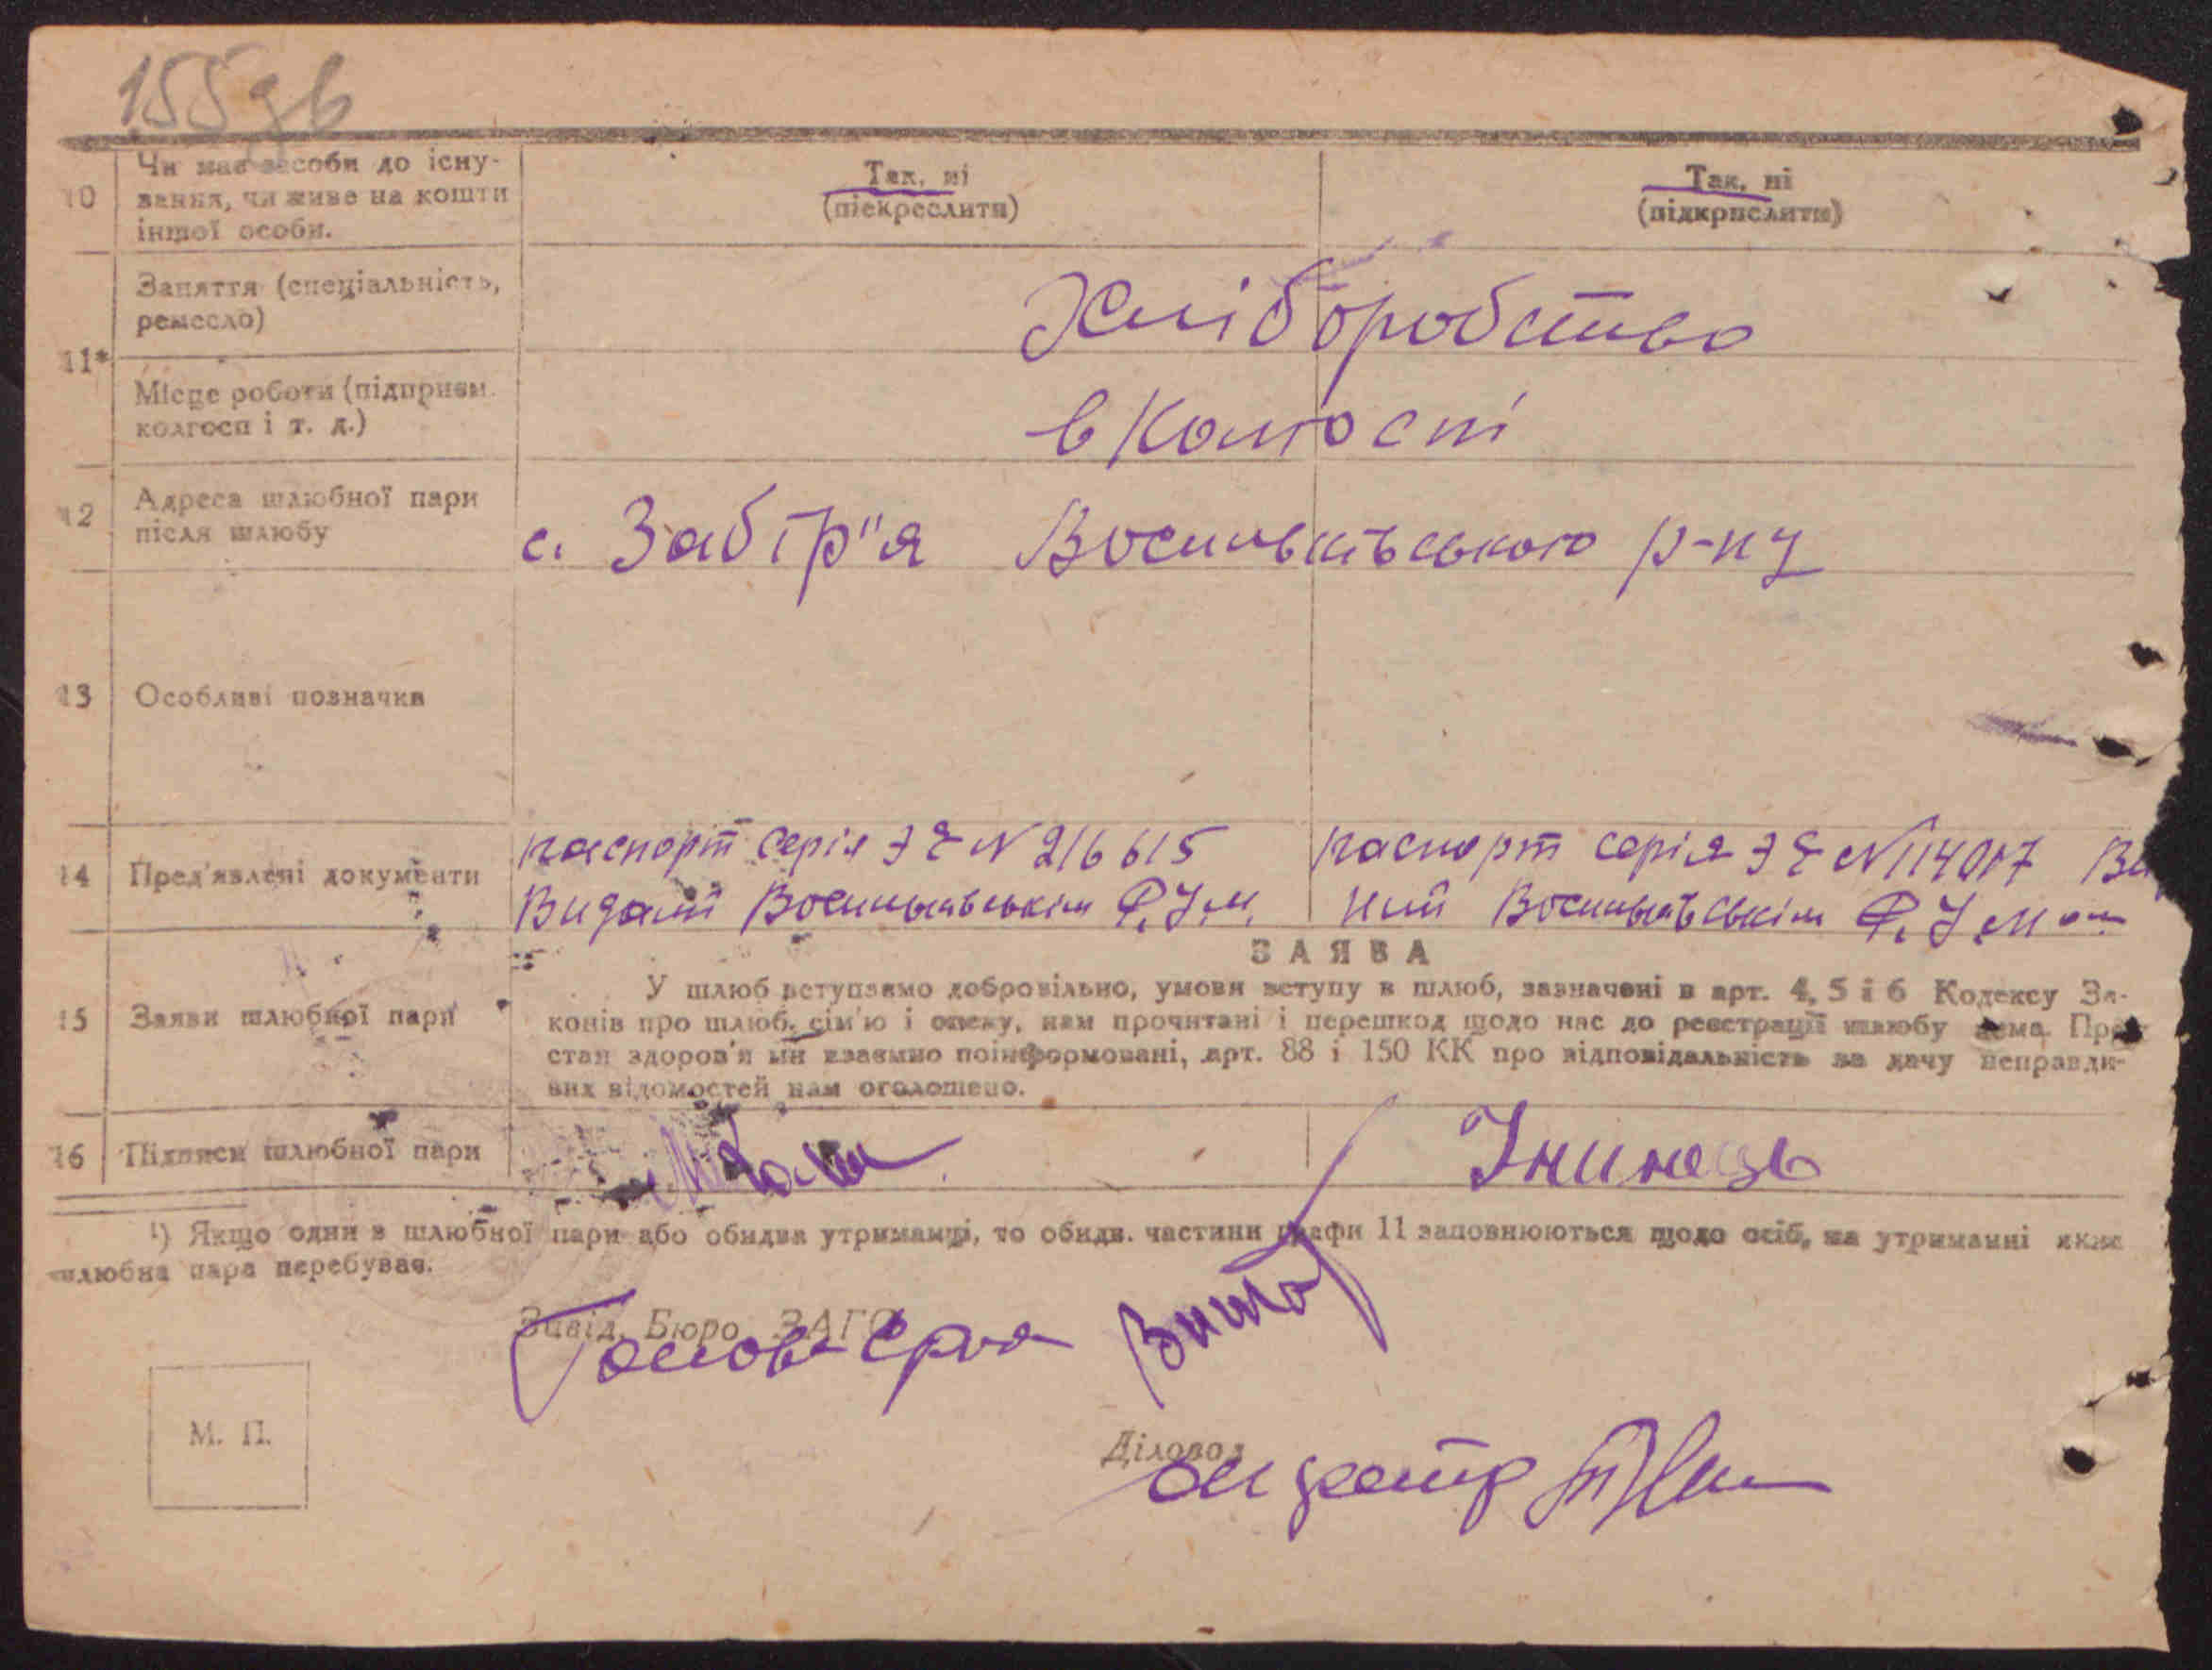 155 зв
10
Чи має засоби до існу-
вання, чи живе на кошти
іншої особи.
Так, ні
(піекреслити)
Так, ні
(підкрислити)
11*
Заняття (спеціальність,
ремесло)
Хліборобство
Місце роботи (підприєм.
колгосп і т. д.)
в Колгоспі
12
Адреса шлюбної пари
після шлюбу
с. Забір"я р-ну
13
Особливі позначки
14
Пред'явлені документи
паспорт серія ЭЕ N 216615
Виданий
паспорт серія ЭЕ N 114017
ний
15
Заяви шлюбної пари
ЗАЯВА
У шлюб вступаємо добровільно, умови вступу в шлюб, зазначені в арт. 4, 5 і 6 Кодексу За-
конів про шлюб, сім'ю і опеку, нам прочитані і перешкод щодо нас до реєстрації шлюбу нема. Про
стан здоров'я ми взаємно поінформовані, арт. 88 і 150 КК про відповідальність за дачу неправди-
вих відомостей нам оголошено.
16
Підписи шлюбної пари
¹) Якщо один з шлюбної пари або обидва утриманці, то обидв. частини графи 11 заповнюються щодо осіб, на утриманні яких
шлюбна пара перебуває.
Завід. Бюро ЗАГС
Голова
М. П.
Діловод